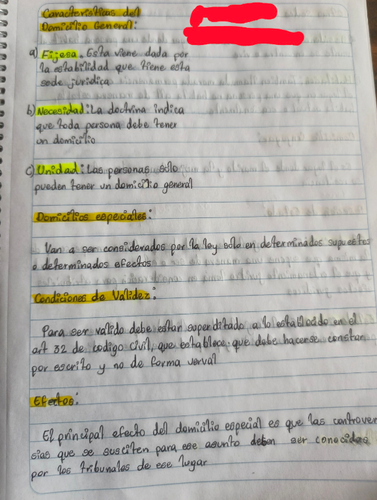 Características del
Domicilio General:
a) Fijeza. Esta viene dada por
la estabilidad que tiene esta
sede jurídica
b) Necesidad: La doctrina indica
que toda persona debe tener
un domicilio
c) Unidad: Las personas solo
pueden tener un domicilio general
Domicilios especiales:
Van a ser considerados por la ley solo en determinados supuestos
o determinados efectos
Condiciones de Validez:
Para ser valido debe estar superditado a lo establecido en el
art 32 de codigo civil, que establece que debe hacerse constar
por escrito y no de forma verval
Efectos:
El principal efecto del domicilio especial es que las controver
sias que se susciten para ese asunto deben ser conocidas
por los tribunales de ese lugar